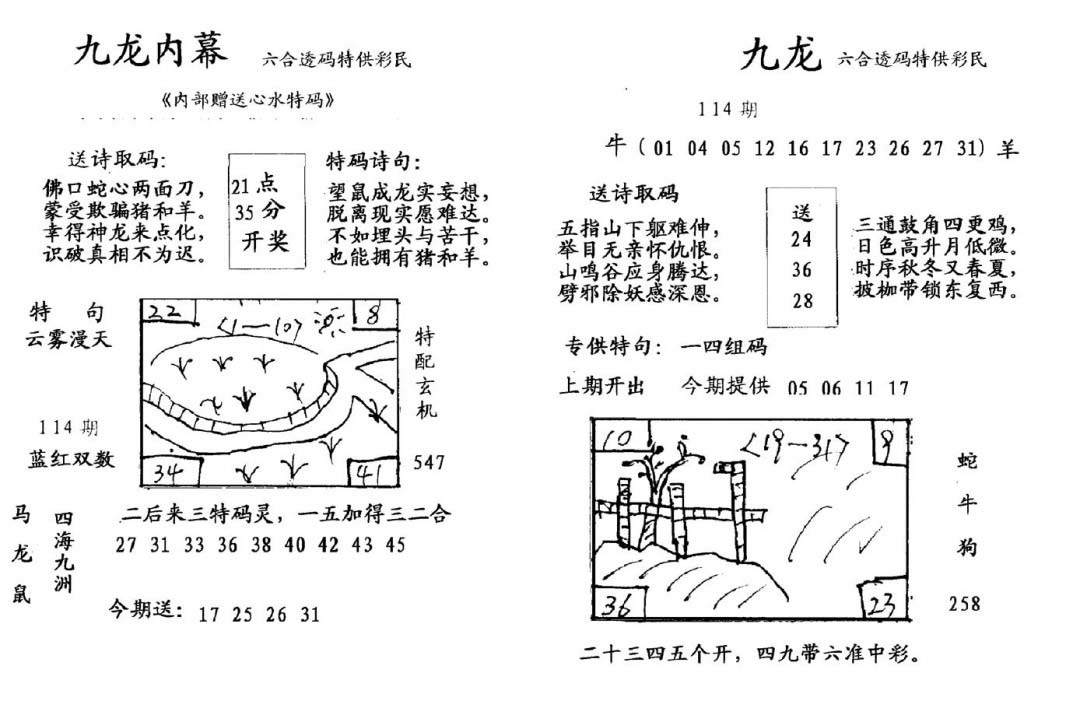 九龙内幕 六合透码特供彩民
《内部赠送心水特码》
送诗取码：
佛口蛇心两面刀，
蒙受欺骗猪和羊。
幸得神龙来点化，
识破真相不为迟。
21点
35分
开奖
特码诗句：
望鼠成龙实妄想，
脱离现实愿难达。
不如埋头与苦干，
也能拥有猪和羊。
特 句
云雾漫天
114期
蓝红双数
22
<1—10>
8
34
41
特配玄机
547
马龙鼠
四海九洲
二后来三特码灵，一五加得三二合
27 31 33 36 38 40 42 43 45
今期送：17 25 26 31
九龙 六合透码特供彩民
114期
牛（01 04 05 12 16 17 23 26 27 31）羊
送诗取码
五指山下躯难伸，
举目无亲怀仇恨。
山鸣谷应身腾达，
劈邪除妖感深恩。
送
24
36
28
三通鼓角四更鸡，
日色高升月低微。
时序秋冬又春夏，
披枷带锁东复西。
专供特句：一四组码
上期开出 今期提供 05 06 11 17
10
<19—31>
9
36
23
蛇
牛
狗
258
二十三四五个开，四九带六准中彩。